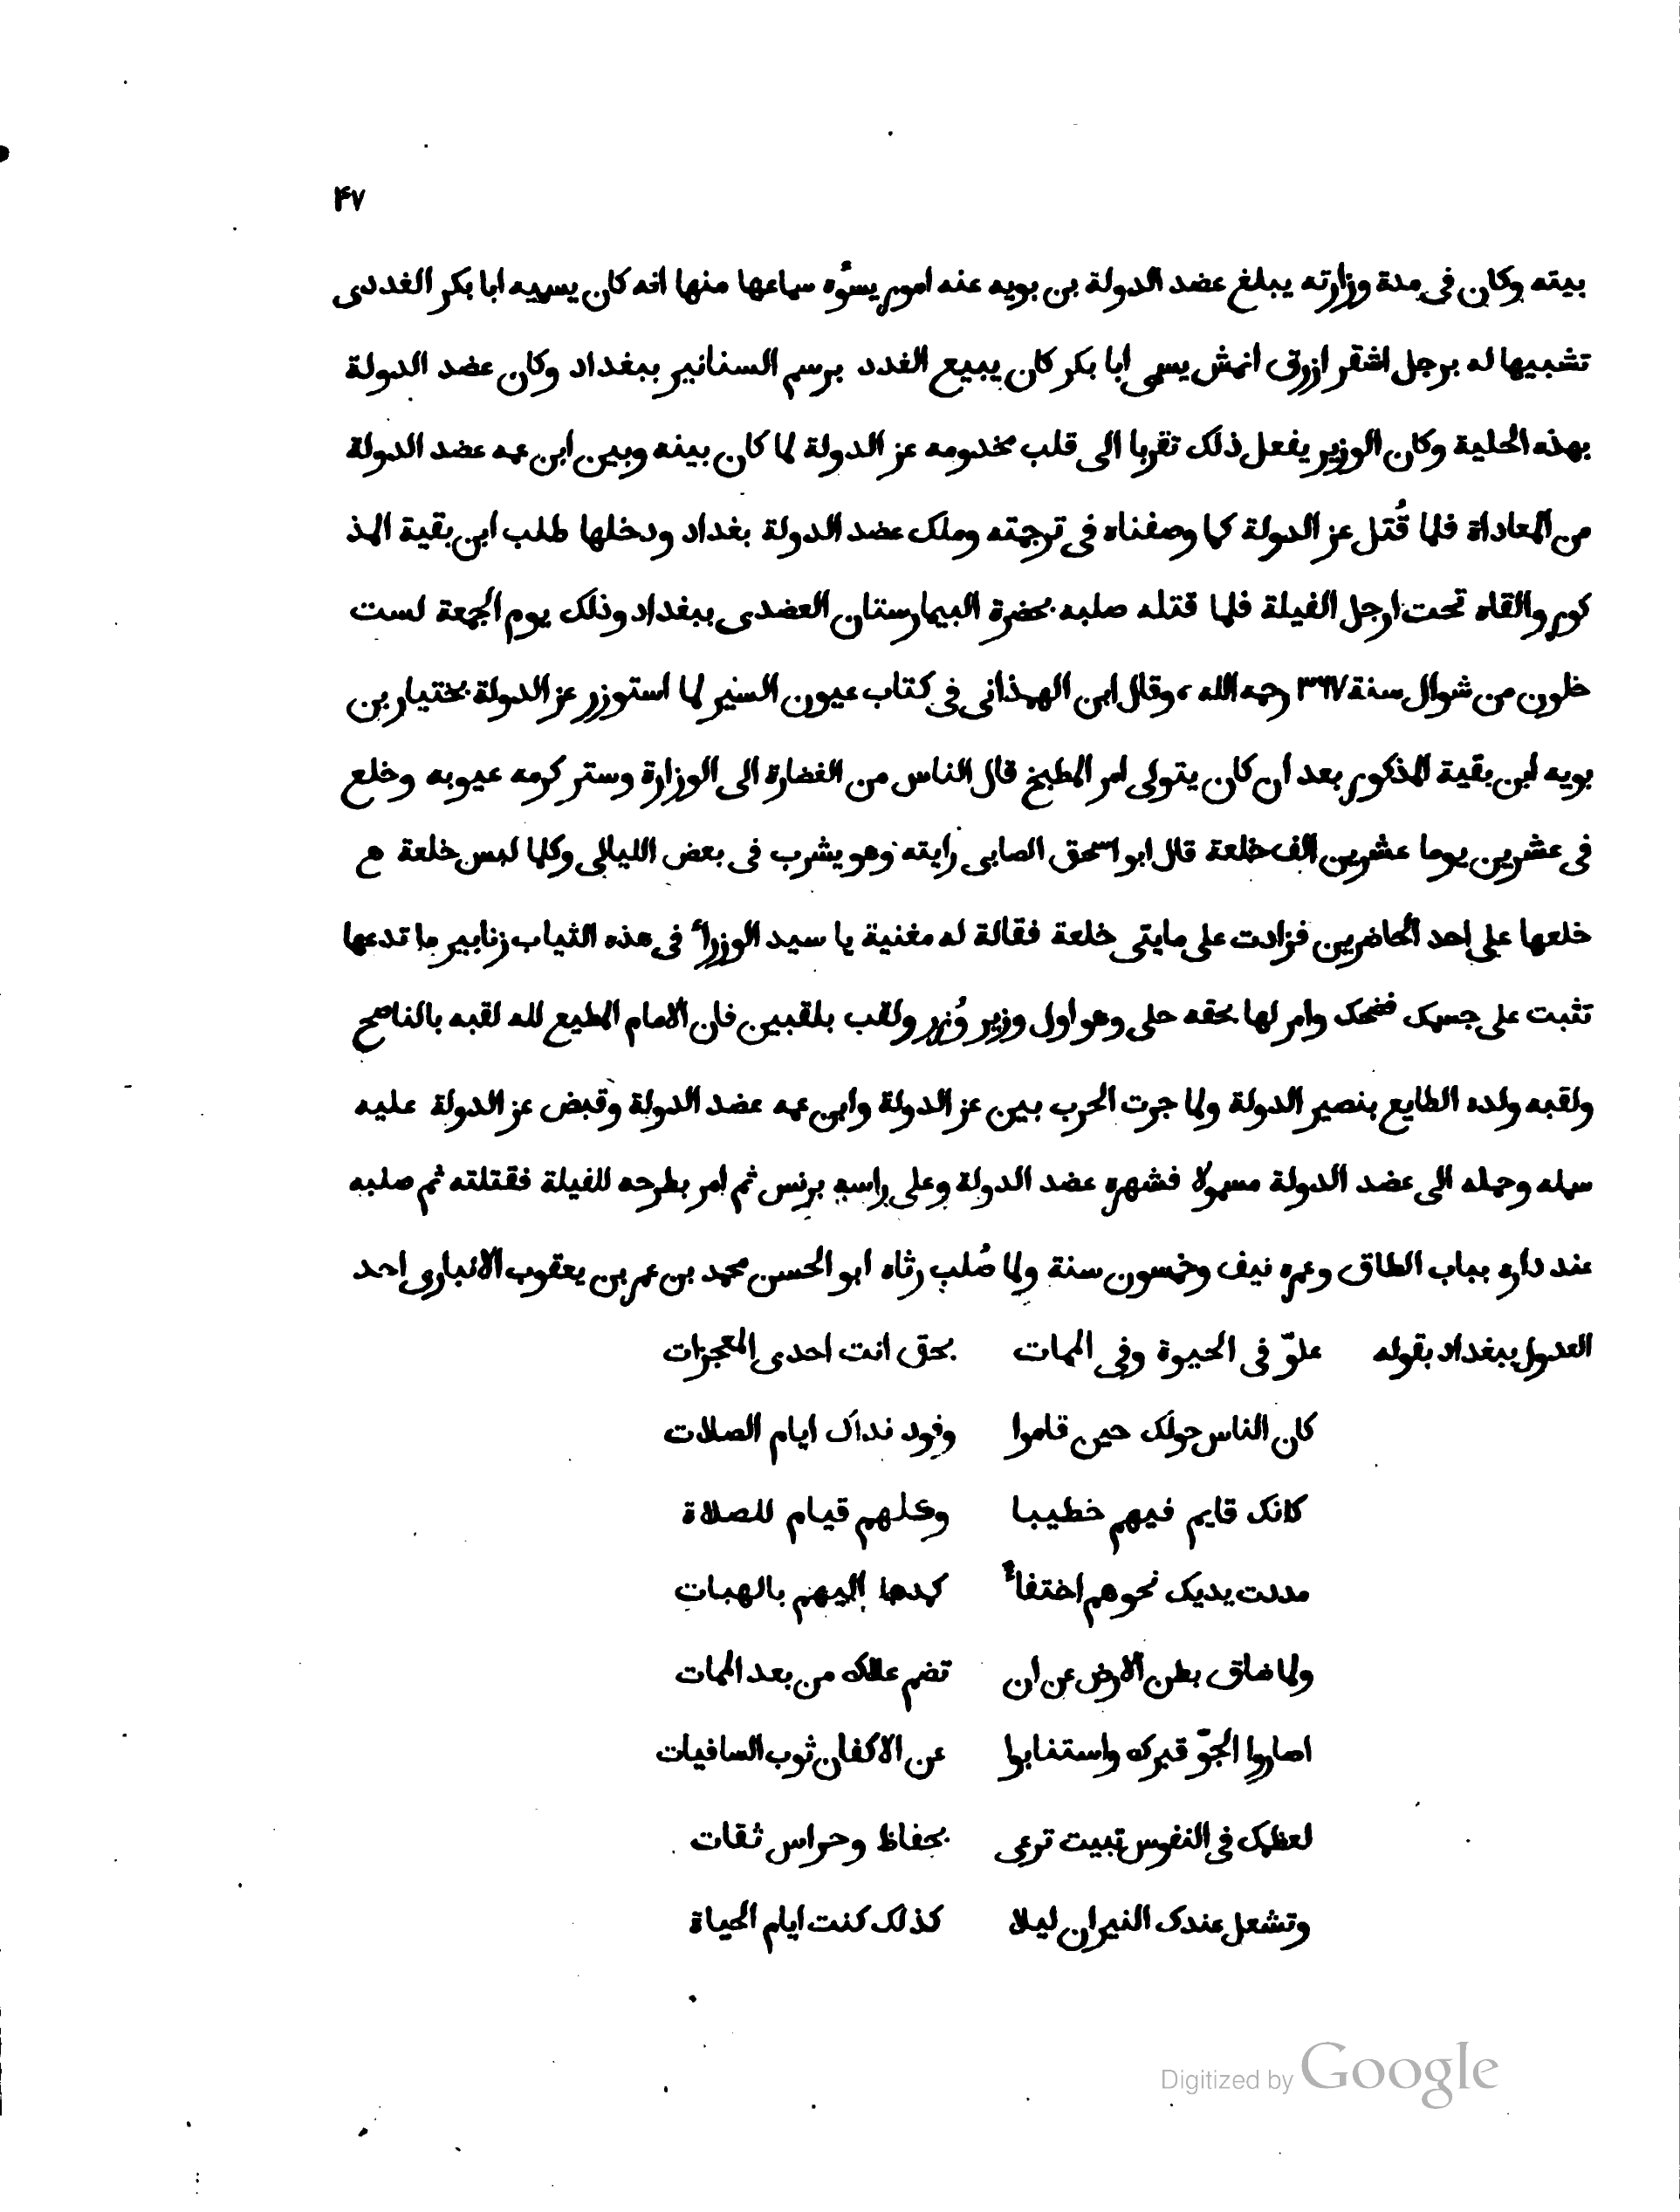 ۴۷
بيته وكان فى مدة وزارته يبلغ عضد الدولة بن بويه عنه امور يسوٴه سماعها منها انه كان يسميه ابا بكر الغددى
تشبيها له برجل اشقر ازرق انمش يسمى ابا بكر كان يبيع الغدد برسم السنانير ببغداد وكان عضد الدولة
بهذه الحلية وكان الوزير يفعل ذلك تقربا الى قلب مخدومه عز الدولة لما كان بينه وبين ابن عمه عضد الدولة
من المعاداة فلما قُتل عز الدولة كما وصفناه فى ترجمته وملك عضد الدولة بغداد ودخلها طلب ابن بقية المذ
كور والقاه تحت ارجل الفيلة فلما قتله صلبه بحضرة البيمارستان العضدى ببغداد وذلك يوم الجمعة لست
خلون من شوال سنة ٣٦٧ رحمه الله، وقال ابن الهمذانى فى كتاب عيون السير لما استوزر عز الدولة بختيار بن
بويه ابن بقية المذكور بعد ان كان يتولى امر المطبخ قال الناس من الغضارة الى الوزارة وستر كرمه عيوبه وخلع
فى عشرين يوما عشرين الف خلعة قال ابو اسحق الصابى رايته وهو يشرب فى بعض الليالى وكلما لبس خلعة ه
خلعها على احد الحاضرين فزادت على مايتى خلعة فقالة له مغنية يا سيد الوزراٴ فى هذه الثياب زنابير ما تدعها
تثبت على جسمك فضحك وامر لها بحقه حلى وهو اول وزير وُزر ولقب بلقبين فان الامام المطيع لله لقبه بالناصح
ولقبه ولده الطايع بنصير الدولة ولما جرت الحرب بين عز الدولة وابن عمه عضد الدولة وقبض عز الدولة عليه
سمله وحمله الى عضد الدولة مسمولا فشهره عضد الدولة وعلى راسه برنس ثم امر بطرحه للفيلة فقتلته ثم صلبه
عند داره بباب الطاق وعمره نيف وخمسون سنة ولما صُلب رثاه ابو الحسن محمد بن عمر بن يعقوب الانبارى احد
العدول ببغداد بقوله علوّ فى الحيوة وفى الممات بحق انت احدى المعجزات
كان الناس حولك حين قاموا وفود نداك ايام الصلات
كانك قايم فيهم خطيبا وكلهم قيام للصلاة
مددت يديك نحوهم اختفاٴً كمدها اليهم بالهبات
ولما ضاق بطن الارض عن ان تضم علاك من بعد الممات
اصاروا الجوّ قبرك واستنابوا عن الاكفان ثوب السافيات
لعظمك فى النفوس تبيت ترعى بحفاظ وحراس ثقات
وتشعل عندك النيران ليلا كذلك كنت ايام الحياة
Digitized by Google